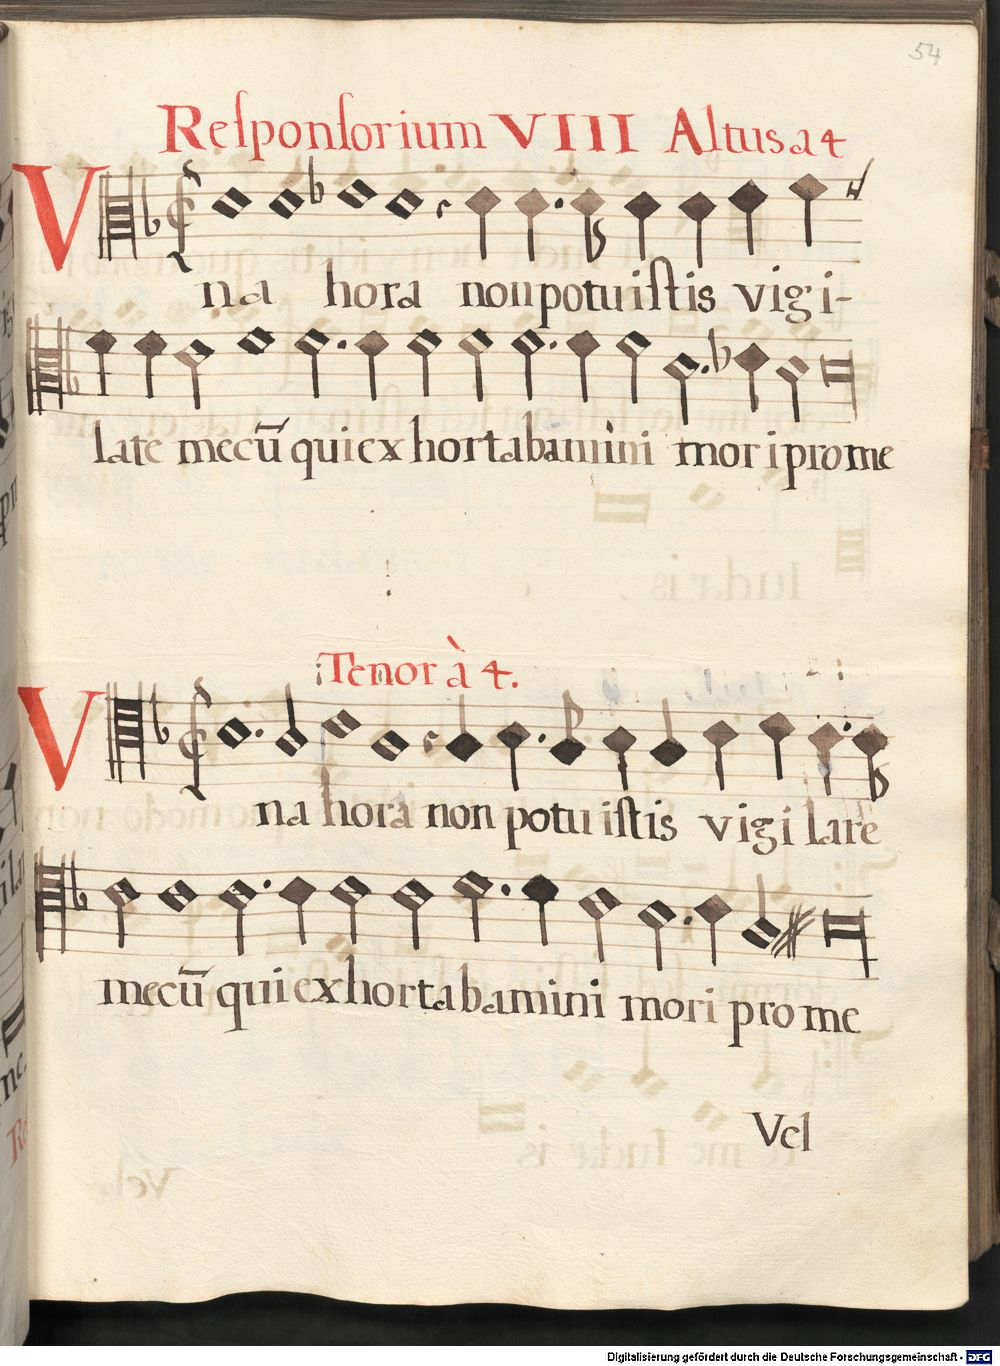 54
Reſponſorium VIII Altus a 4
Vna hora non potuiſtis vigi-
late mecū qui exhortabamini mori pro me
Tenor à 4.
Vna hora non potuiſtis vigilare
mecū qui exhortabamini mori pro me
Vel
Digitalisierung gefördert durch die Deutsche Forschungsgemeinschaft - DFG